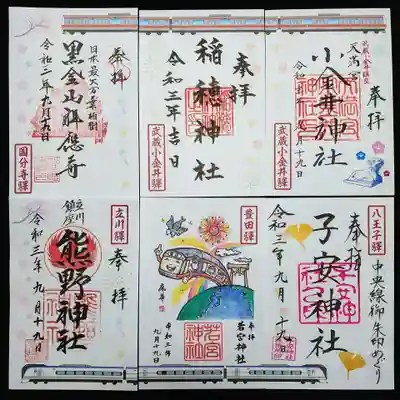 奉拝
黒金山祥應寺
令和三年九月十九日
国分寺驛
奉拝
稲穂神社
令和三年吉日
武蔵小金井驛
奉拝
天満宮
小金井神社
武蔵小金井驛
立川驛
奉拝
立川
鎮座
熊野神社
令和三年九月十九日
豊田驛
奉拝
若宮神社
若宮
神社
令和三年
九月十九日
八王子驛
中央線御朱印めぐり
奉拝
子安神社
令和三年九月十九日